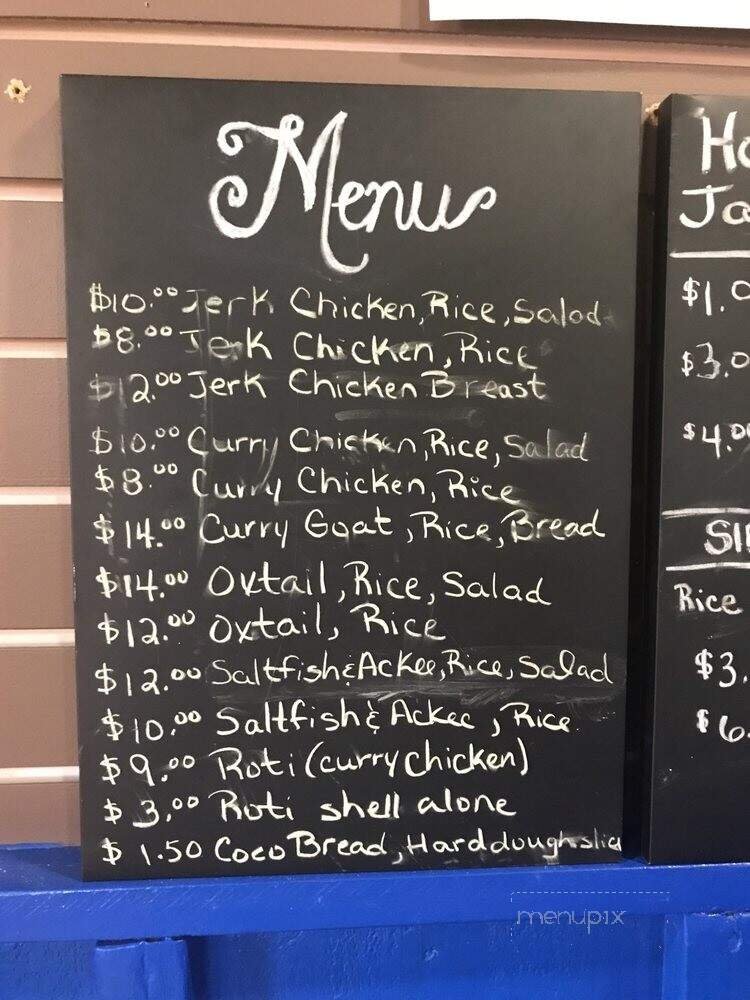 Menu
$10.00 Jerk Chicken, Rice, Salad
$8.00 Jerk Chicken, Rice
$12.00 Jerk Chicken Breast
$10.00 Curry Chicken, Rice, Salad
$8.00 Curry Chicken, Rice
$14.00 Curry Goat, Rice, Bread
$14.00 Oxtail, Rice, Salad
$12.00 Oxtail, Rice
$12.00 Saltfish & Ackee, Rice, Salad
$10.00 Saltfish & Ackee, Rice
$9.00 Roti (curry chicken)
$3.00 Roti shell alone
$1.50 Coco Bread, Harddough slice
Ja
$1.0
$3.0
$4.00
Rice
$3.
$6.
menupix